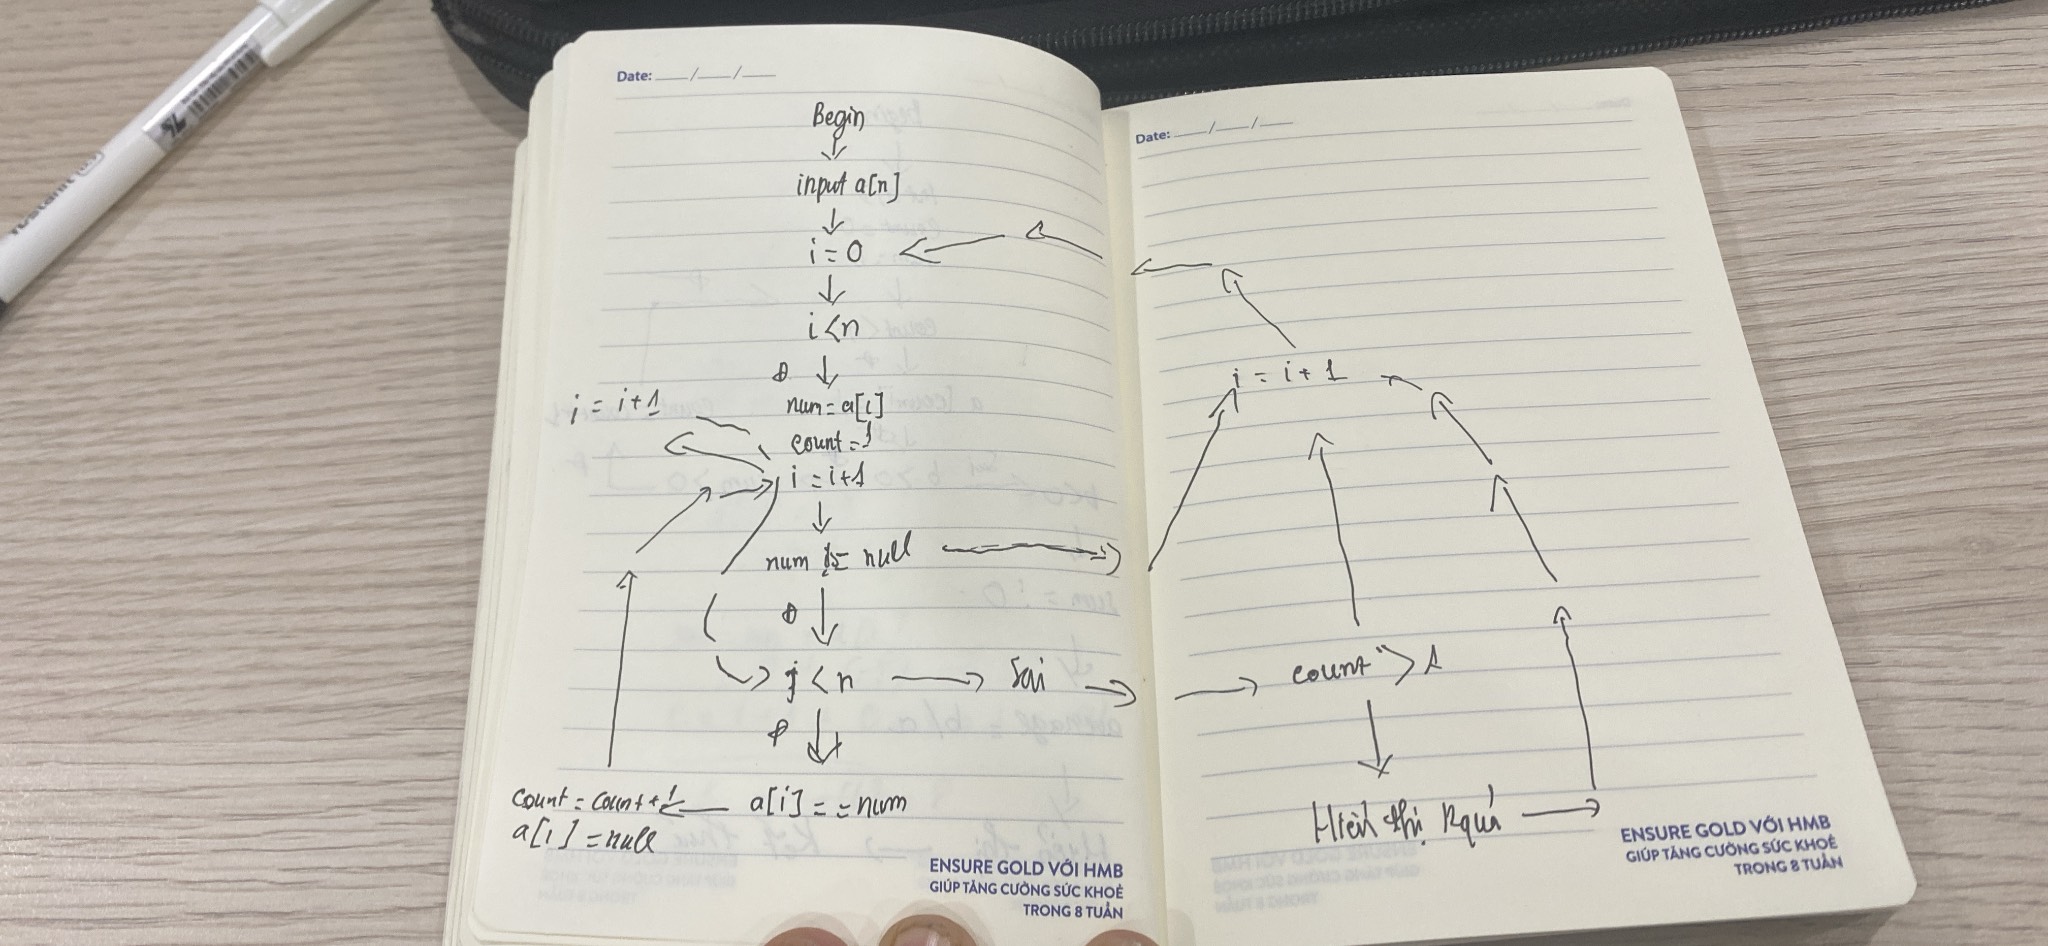 Date: __/__/__
Begin
input a[n]
i = 0
i < n
Đ
num = a[i]
count = 1
i = i+1
j = i+1
num != null
Đ
j < n
Sai
Đ
a[i] == num
count = count + 1
a[i] = null
ENSURE GOLD VỚI HMB
GIÚP TĂNG CƯỜNG SỨC KHOẺ
TRONG 8 TUẦN
Date: __/__/__
i = i + 1
count > 1
Hiển thị kquả
ENSURE GOLD VỚI HMB
GIÚP TĂNG CƯỜNG SỨC KHOẺ
TRONG 8 TUẦN